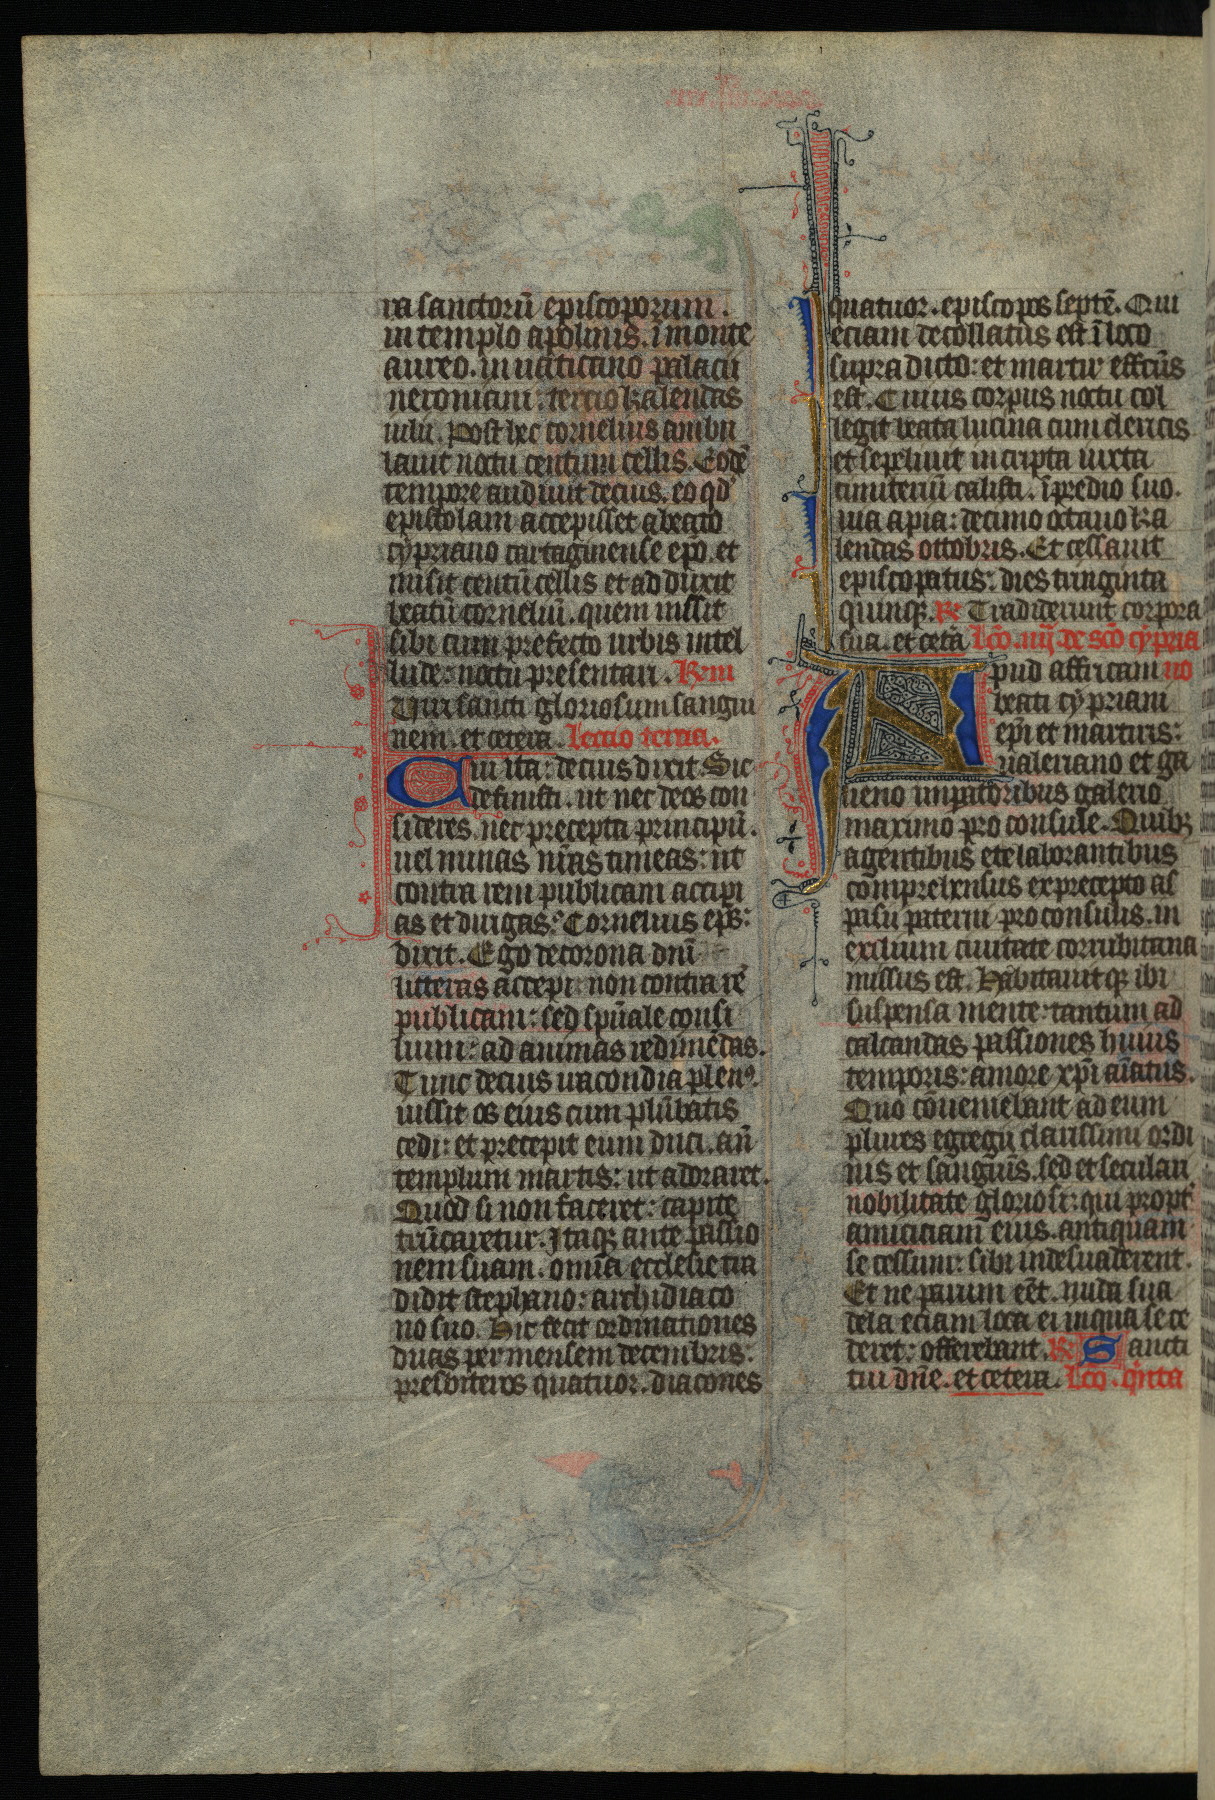 ra sanctorū episcoporum.
in templo apolinis. ī monte
aureo. in uaticano palacii
neroniani: tercio kalendas
iulii. Post hec cornelius ambu
lauit noctu centum cellis. Eodē
tempore audiuit decius. eo qd'
epistolam accepisset a beato
cypriano cartaginense epō. et
misit centū cellis et adduxit
beatū corneliū. quem iussit
sibi cum prefecto urbis intel
lude: noctu presentari. Rm
Viri sancti gloriosum sangui
nem. et cetera. Lectio tercia.
Cui ita: decius dixit. Sic
definisti. ut nec deos con
sideres. nec precepta principū.
uel minas nr̄as timeas: ut
contra rem publicam accipi
as et dirigas. Cornelius ep̄s:
dixit. Ego de corona dnī
litteras accepi: non contra rē
publicam: sed spūale consi
lium: ad animas redimēdas.
Tunc decius iracondia plenꝰ.
iussit os eius cum plūbatis
cedi: et precepit eum duci. an̄
templum martis: ut adoraret.
Quod si non faceret: capite
trūcaretur. Itaqꝫ ante passio
nem suam. omnia ecclesie tra
didit stephano: archidiaco
no suo. Hic fecit ordinationes
duas per mensem decembris:
presbiteros quatuor. diacones
quatuor. episcopos septē. Qui
eciam decollatus est ī loco
supradicto: et martir effectus
est. Cuius corpus noctu col
legit beata lucina cum clericis
et sepeliuit in cripta iuxta
cimiteriū calisti. ī predio suo.
uia apia: decimo octauo ka
lendas ottobris. Et cessauit
episcopatus: dies tringinta
quinqꝫ. R Tradiderunt corpora
sua. et cetā Lc̄o. iiij de sc̄o cypria
Apud affricam no
beati cypriani
ep̄i et martiris:
ualeriano et ga
lieno inpatoribus galerio
maximo proconsule. Quibꝫ
agentibus et elaborantibus
comprehensus ex precepto as
pasii paterni proconsulis. in
exilium ciuitate corrubitana
missus est. Habitauitqꝫ ibi
suspensa mente: tantum ad
calcandas passiones huius
temporis: amore xp̄i aīatus.
Quo cōueniebant ad eum
plures egregii clarissimi ordi
nis et sanguīs. sed et seculari
nobilitate gloriosi: qui propt'
amiciciam eius. antiquam
secessum: sibi inde suaderent.
Et ne parum eēt. nuda sua
dela eciam loca ei in qua sece
deret: offerebant. R Sancti
tui dn̄e. et cetera. Lc̄o. qīnta